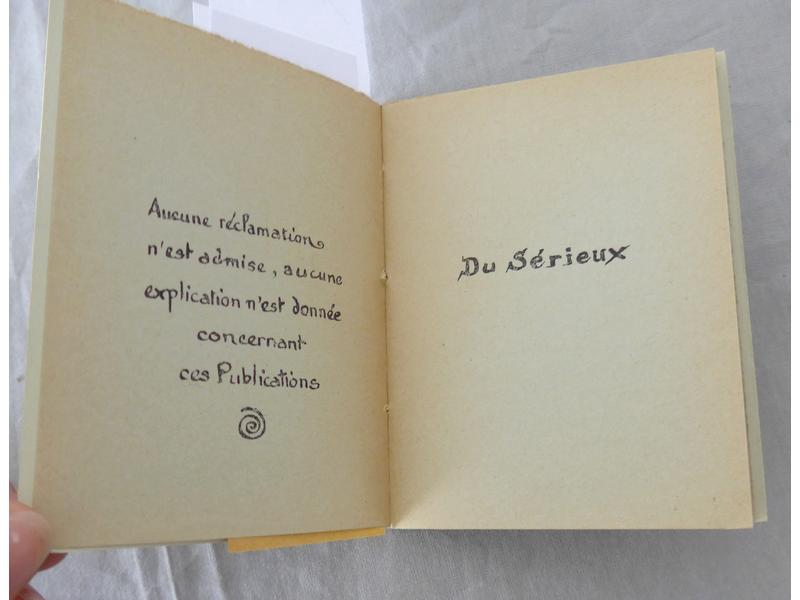 Aucune réclamation
n'est admise, aucune
explication n'est donnée
concernant
ces Publications
Du Sérieux